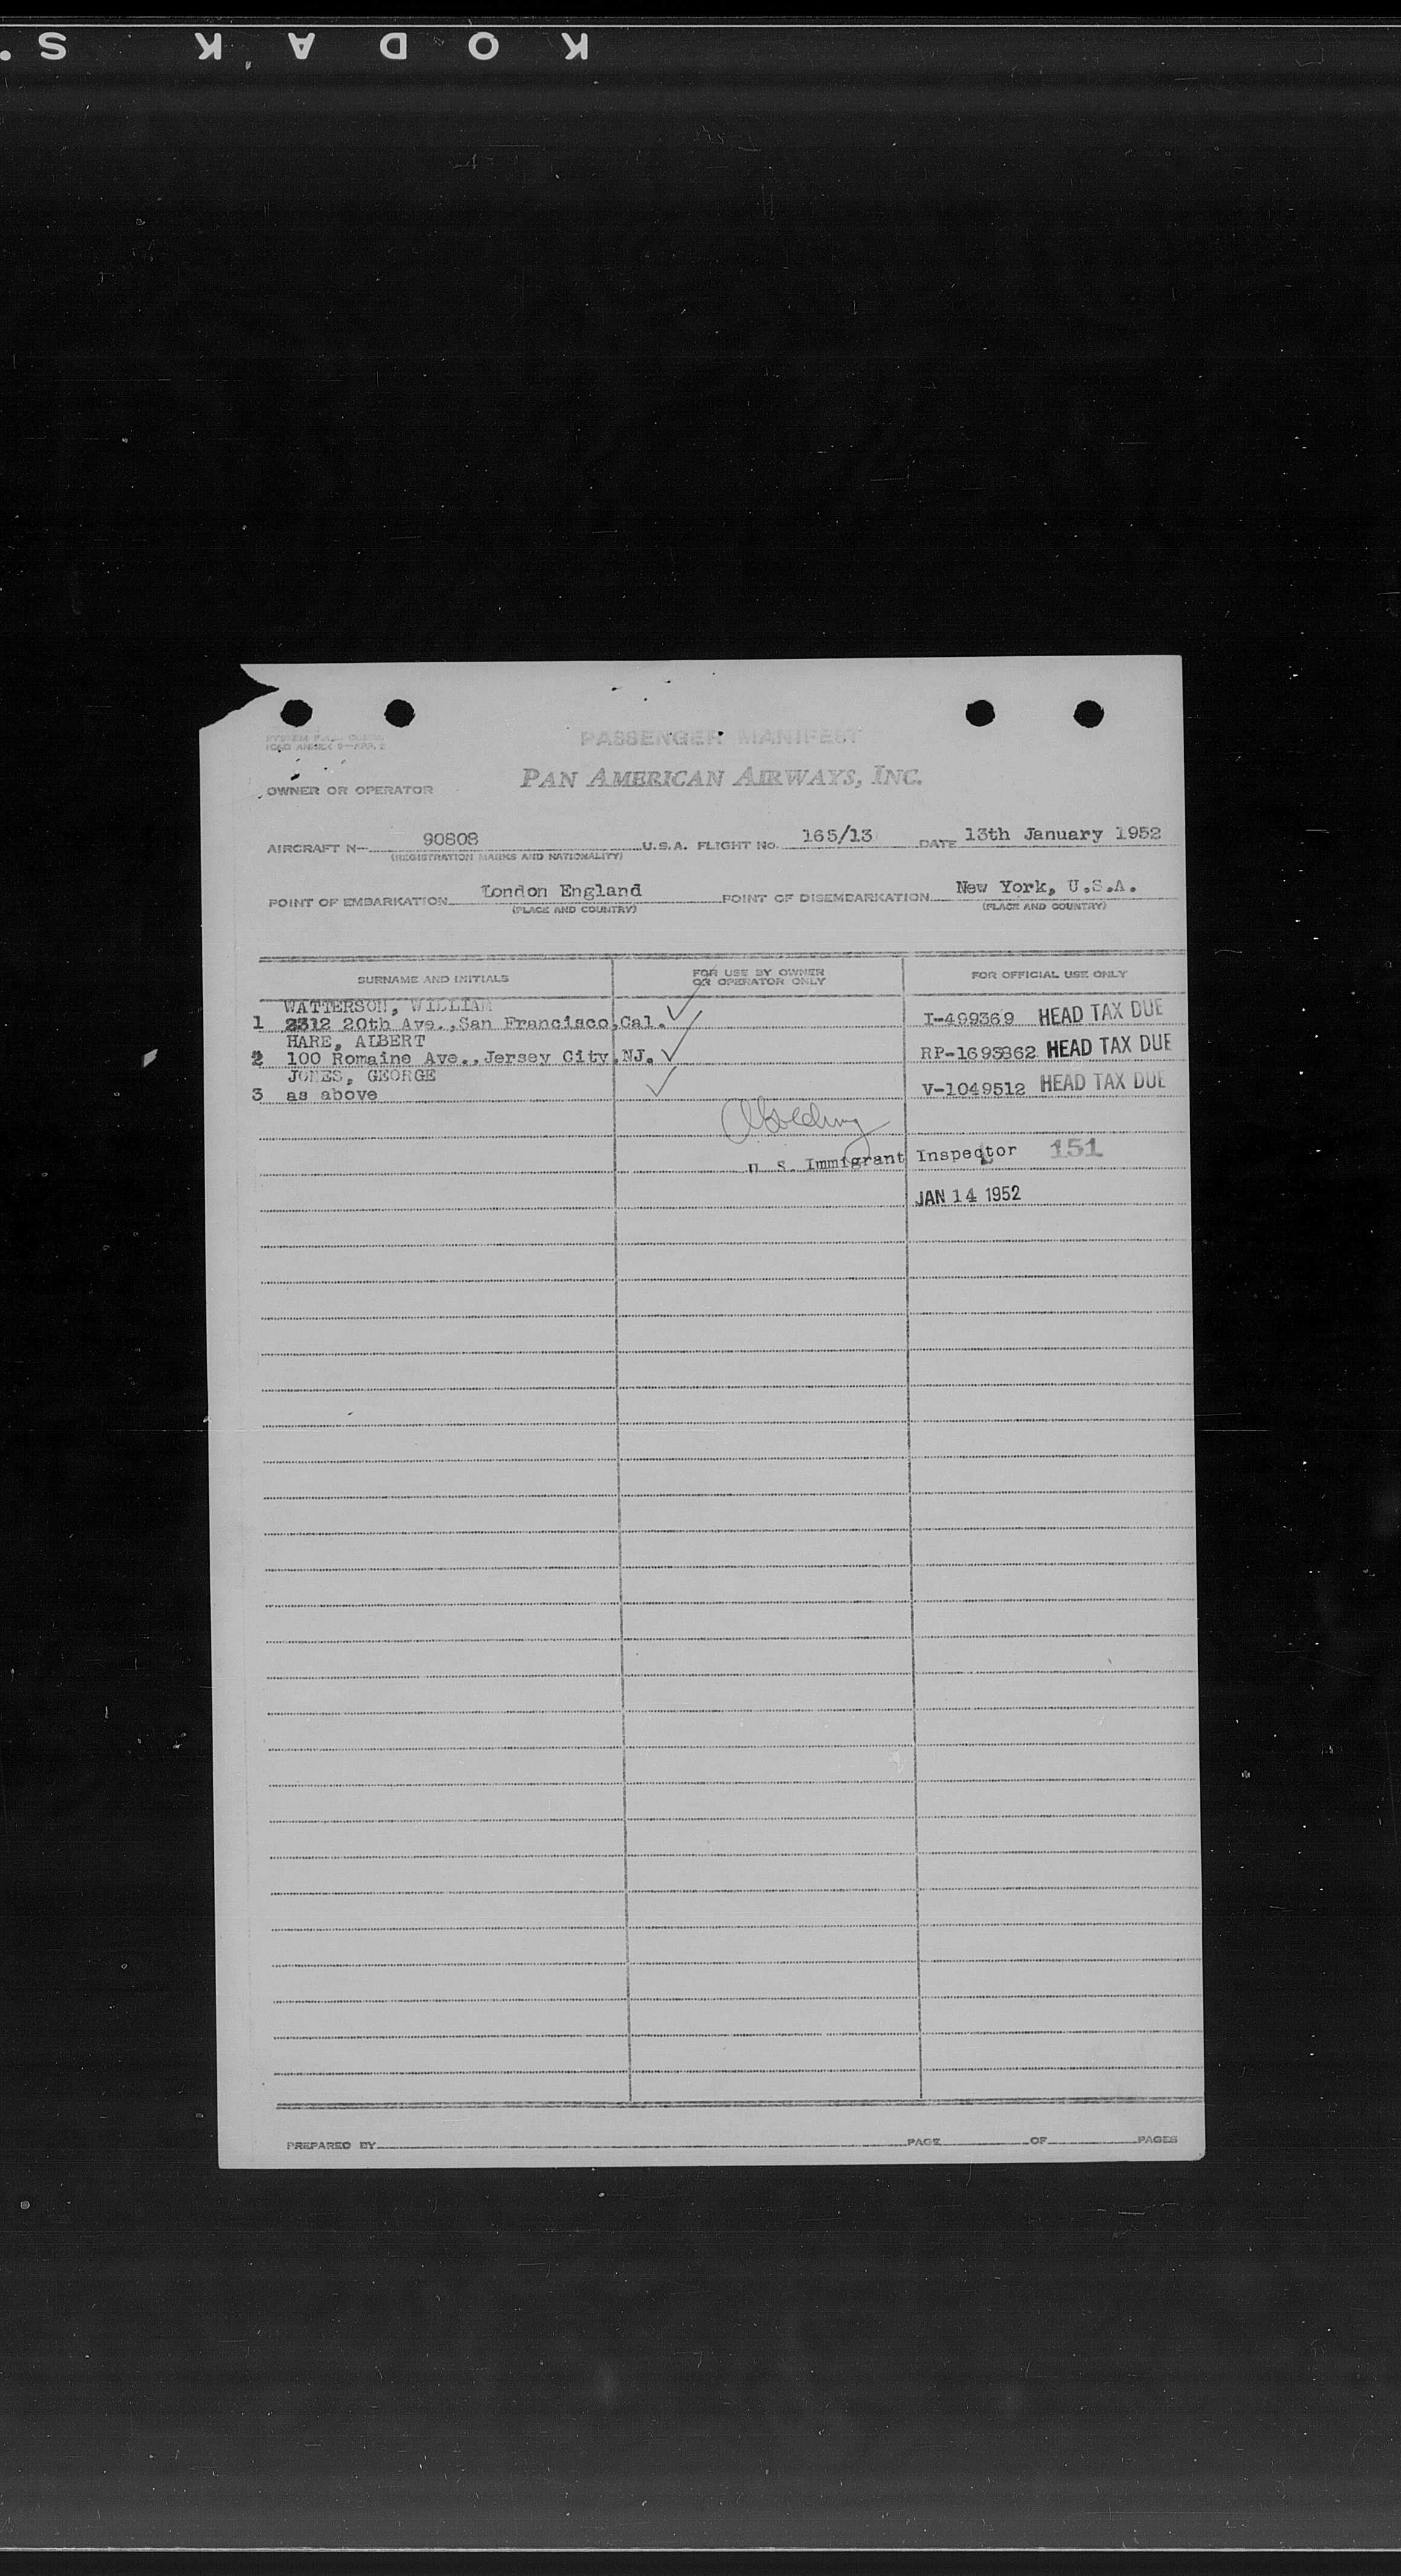 KODAK S.
PASSENGER MANIFEST
ICAO ANNEX 9—APP. 2
PAN AMERICAN AIRWAYS, INC.
OWNER OR OPERATOR
AIRCRAFT N— 90808 U.S.A. FLIGHT No. 165/13 DATE 13th January 1952
(REGISTRATION MARKS AND NATIONALITY)
POINT OF EMBARKATION London England POINT OF DISEMBARKATION New York, U.S.A.
(PLACE AND COUNTRY) (PLACE AND COUNTRY)
SURNAME AND INITIALS FOR USE BY OWNER OR OPERATOR ONLY FOR OFFICIAL USE ONLY
WATTERSON, WILLIAM
1 2312 20th Ave.,San Francisco,Cal. I-499369 HEAD TAX DUE
HARE, ALBERT
2 100 Romaine Ave.,Jersey City,NJ. RP-1693862 HEAD TAX DUE
JONES, GEORGE
3 as above V-1049512 HEAD TAX DUE
U. S. Immigrant Inspector 151
JAN 14 1952
PREPARED BY PAGE OF PAGES